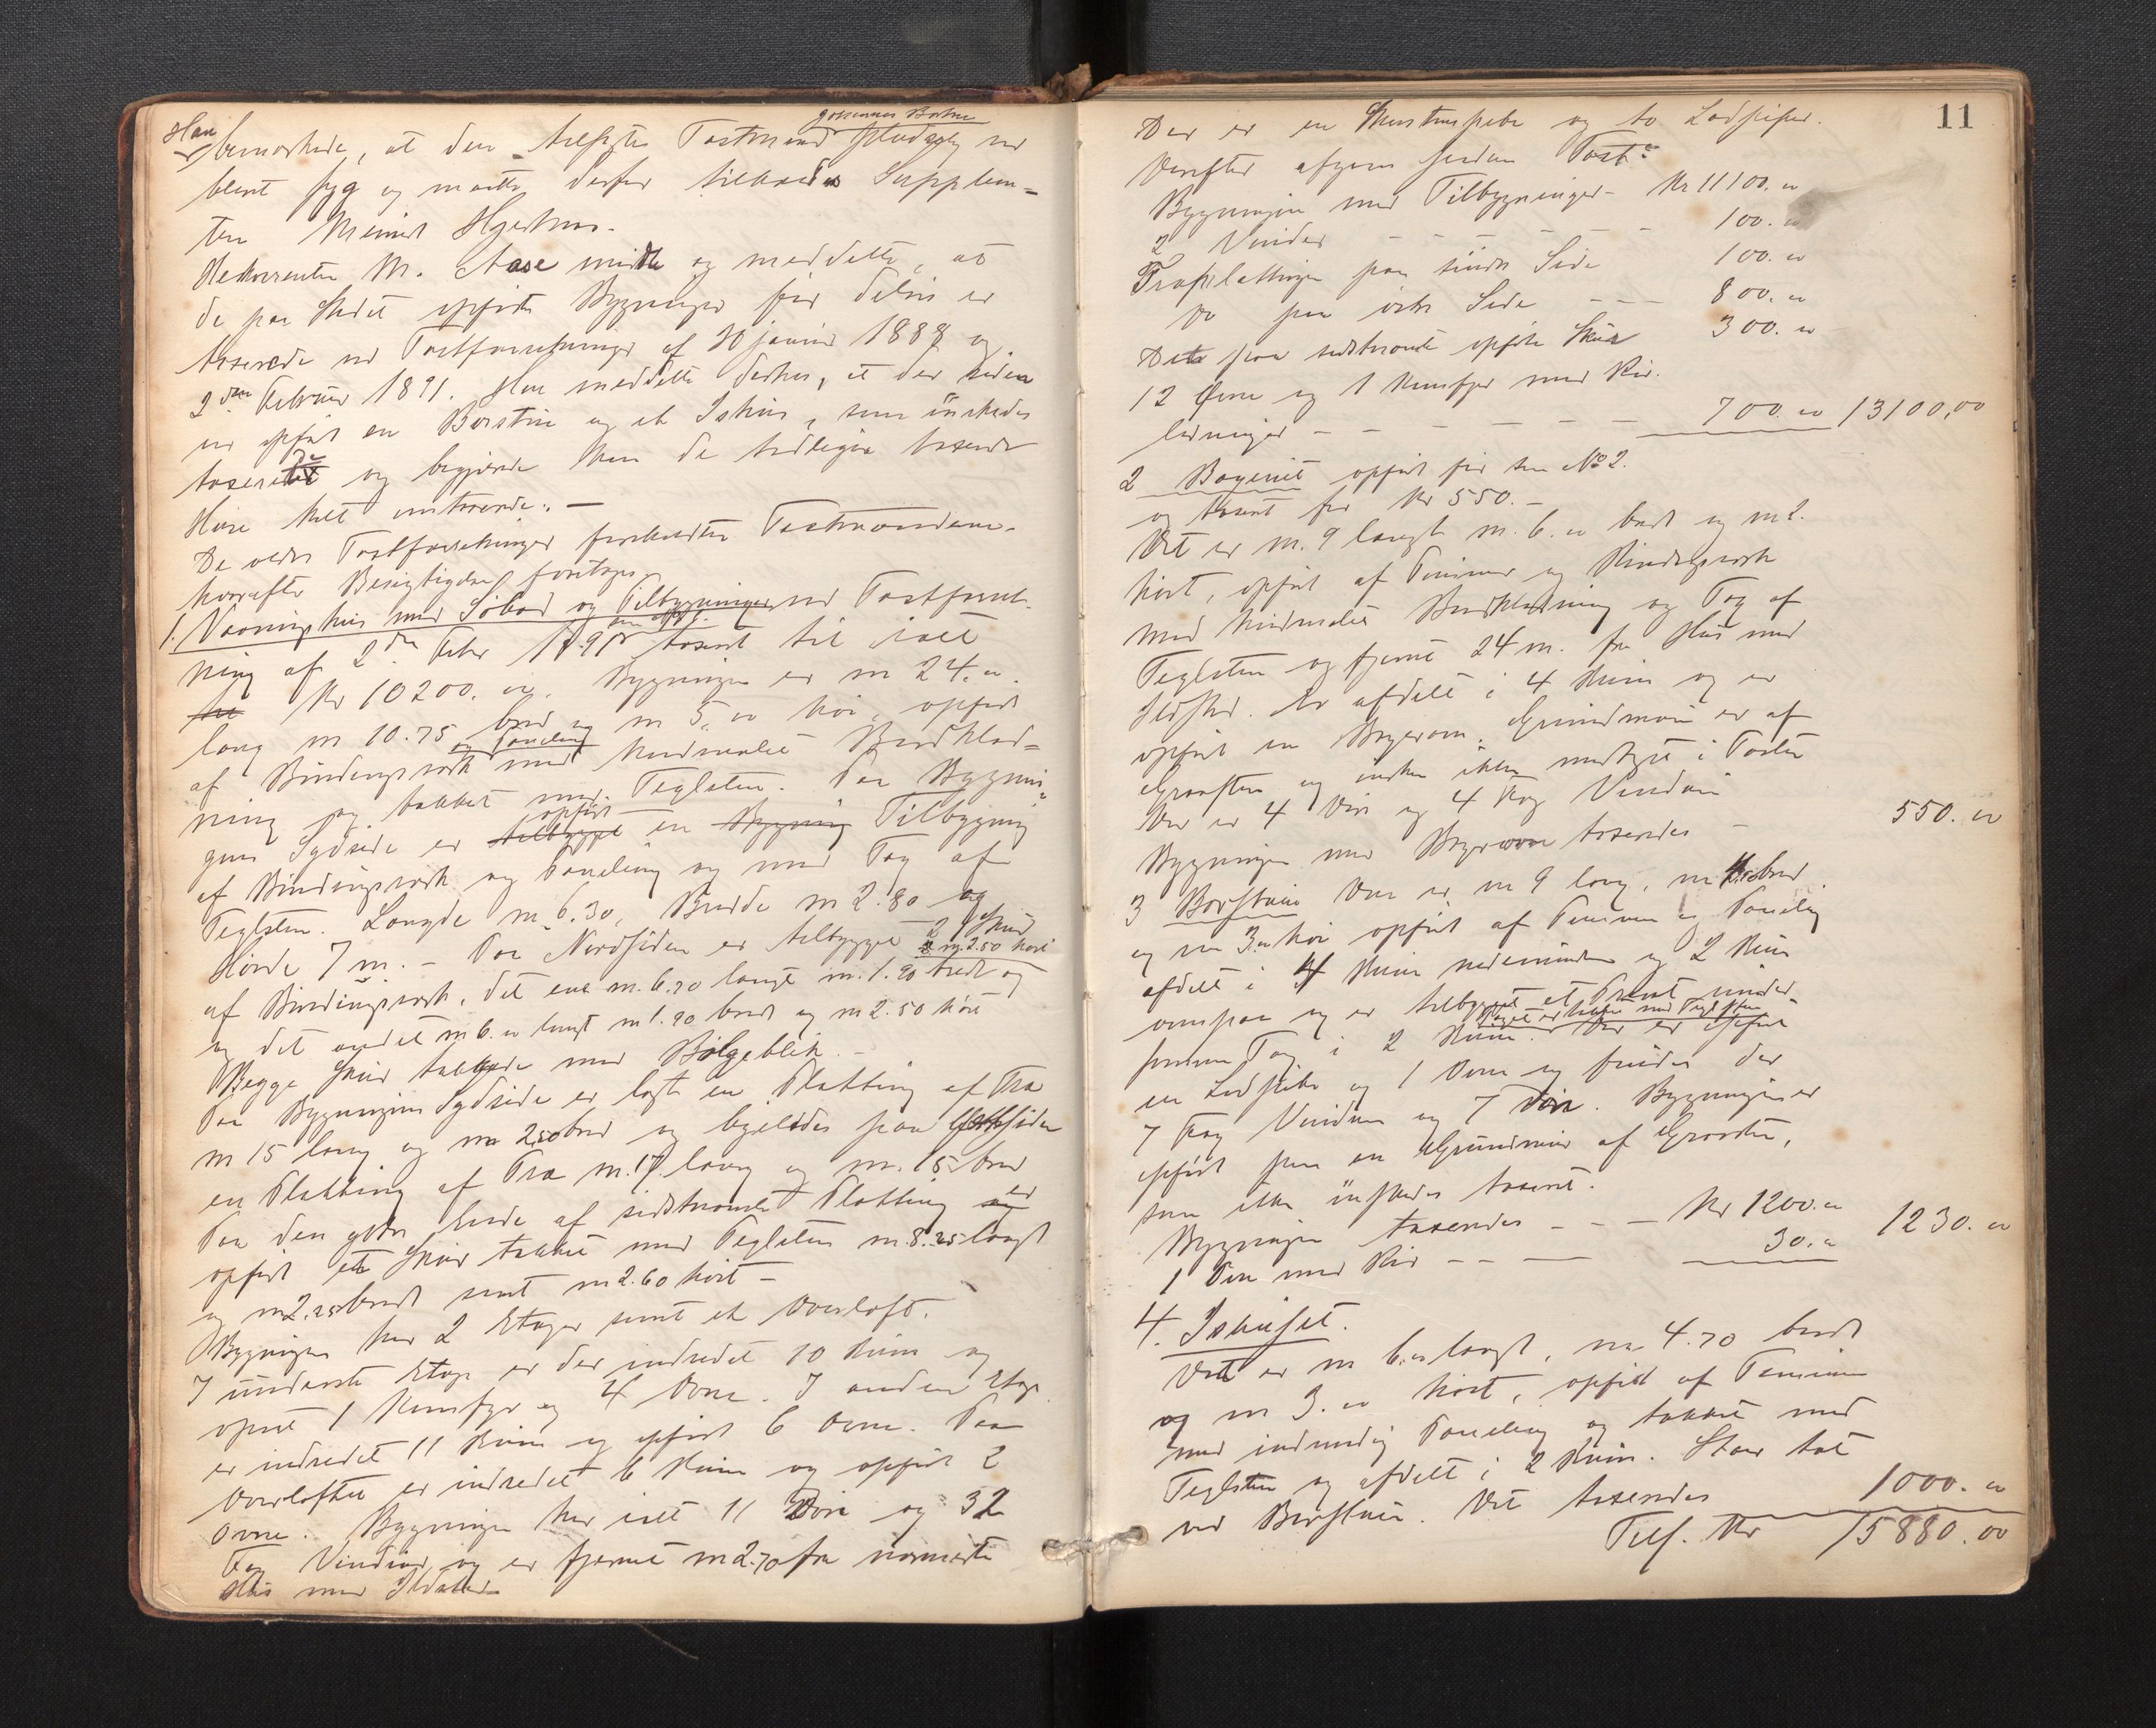 Han bemærkede, at den tilsagte Taxtmand Johannes
blevet syg og maatte derfor tilkaldes Supplean-
ten
Rekvirenten M. Aase mødte og meddelte, at
de paa Stedet opførte Bygninger før delvis er
taxerede ved Taxtforretninger af 20 januar 1888 og
2den Februar 1891. Han meddelte derhos, at der siden
er opført en Borstue og et Ishus, som ønskedes
taxerede og begjærede han de tidligere taxerede
Huse omtaxerede. —
De ældre Taxtforretninger foreholdtes Taxtmændene
hvorefter Besigtigelse foretoges.
1. Vaaningshus med Søbod og Tilbygninger ved Taxtforret-
ning af 2den Febr 1891 taxeret til ialt
Kr 10200. 00. Bygningen er m 24. 00
lang m 10.75 bred og m 5. 00 høi, opført
af Bindingsværk og Paneling med hvidmalet Bordklæd-
ning og tækket med Teglsten. Paa Bygnin-
gens Sydside er opført en Tilbygning
af Bindingsværk og Paneling og med Tag af
Teglsten. Længde m 6.30, Bredde m 2.80 og
Høide 7 m. - Paa Nordsiden er tilbygget 2 Skur
af Bindingsværk, det ene m. 6.70 langt m. 1.90 bredt og m 2.50 høit
og det andet m 6. 00 langt m 1.90 bredt og m 2.50 høit
Begge Skur tækkede med Bølgeblik. -
Paa Bygningens Sydside er lagt en Platting af Træ
m 15 lang og m 2.50 bred og ligeledes paa
en Platting af Træ m. 17. lang og m. 15 bred
Paa den ydre Ende af sidstnævnte Platting er
opført et Skur tækket med Teglsten m. 8.25 langt
og m 2.25 bredt samt m 2.60 høit -
Bygningen har 2 Etager samt et Overloft.
I underste Etage er der indredet 10 Rum og
opsat 1 Komfyr og 4 Ovne. I anden Etage
er indredet 11 Rum og opført 6 Ovne. Paa
Overloftet er indredet 6 Rum og opført 2
Ovne. Bygningen har ialt 11 Døre og 32
Fag Vinduer, og er fjernet m 2.70 fra nærmeste
Hus med Ildsted.
11
Der er en Skorstenspibe og to Lodpiber.
Derefter afgives saadan Taxt:
Bygningen med Tilbygninger - Kr 11100. 00
2 Vinder - - - - - - 100. 00
Træplattingen paa søndre Side 100. 00
Do paa Side - - - 800. 00
Det paa sidstnævnte opførte Skur 300. 00
12 Ovne og 1 Komfyr med Rør-
ledninger - - - - - - 700. 00 13100,00
2 Bageriet opført før som No 2.
og taxeret for Kr 550. -
Det er m. 9 langt m. 6. 00 bredt og m 2.
høit, opført af Tømmer og Bindingsværk
med hvidmalet Bordklædning og Tag af
Teglsten og fjernet 24 m. fra Hus med
Ildsted. Er afdelt i 4 Rum og er
opført en Bagerovn. Grundmuren er af
Graasten og ønskes ikke medtaget i Taxten
Der er 4 Døre og 4 Fag Vinduer
Bygningen med Bagerovn taxeredes - 550. 00
3 Borstuen Den er m 9 lang, m bred
og m 3. 00 høi opført af Tømmer og Paneling
afdelt i 4 Rum nedenunder og 2 Rum
ovenpaa og er tilbygget et under
samme Tag i 2 Rum. Taget er tækket med Teglsten Der er opført
en Lodpibe og 1 Ovn og findes der
7 Fag Vinduer og 7 Døre. Bygningen er
opført paa en Grundmur af Graasten,
som ikke ønskedes taxeret.
Bygningen taxeredes - - - Kr 1200. 00
1 Ovn med Rør - - — 30. 00 1230. 00
4. Ishuset.
Det er m 6. 00 langt, m 4.70 bredt
og m 3. 00 høit, opført af Tømmer
med indvendig Paneling og tækket med
Teglsten og afdelt i 2 Rum. Staar tæt
ved Borstuen. Det taxeredes 1000. 00
Tils. Kr 15880. 00